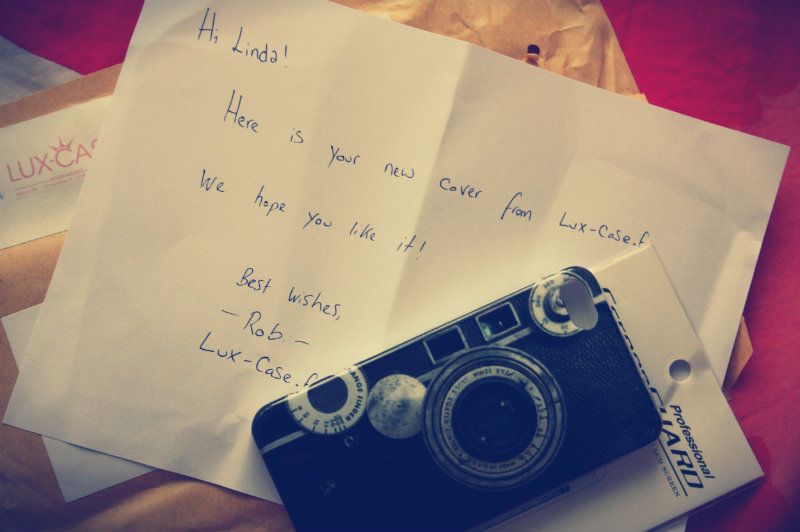 Hi Linda!
Here is your new cover from Lux-Case.f
We hope you like it!
Best wishes,
- Rob. -
Lux-Case.f
LUX-CAS
RANGE FINDER
Professional
GUARD
LCD SCREEN